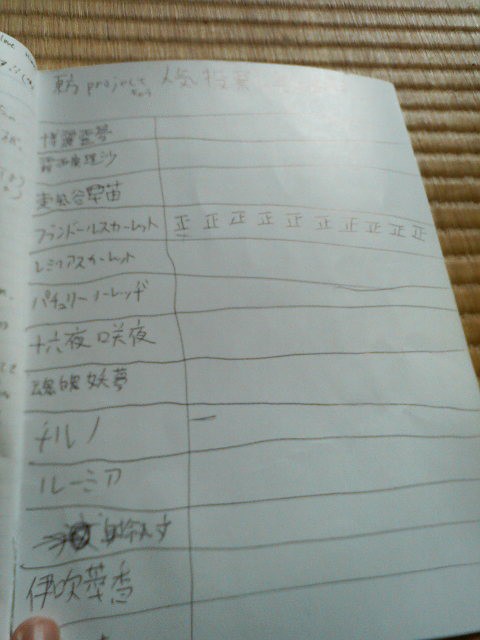 東方project 人気投票
博麗霊夢
霧雨魔理沙
東風谷早苗
フランドールスカーレット 正 正 正 正 正 正 正 正 正
レミリアスカーレット
パチュリーノーレッヂ
十六夜咲夜
魂魄妖夢
チルノ 一
ルーミア
伊吹萃香